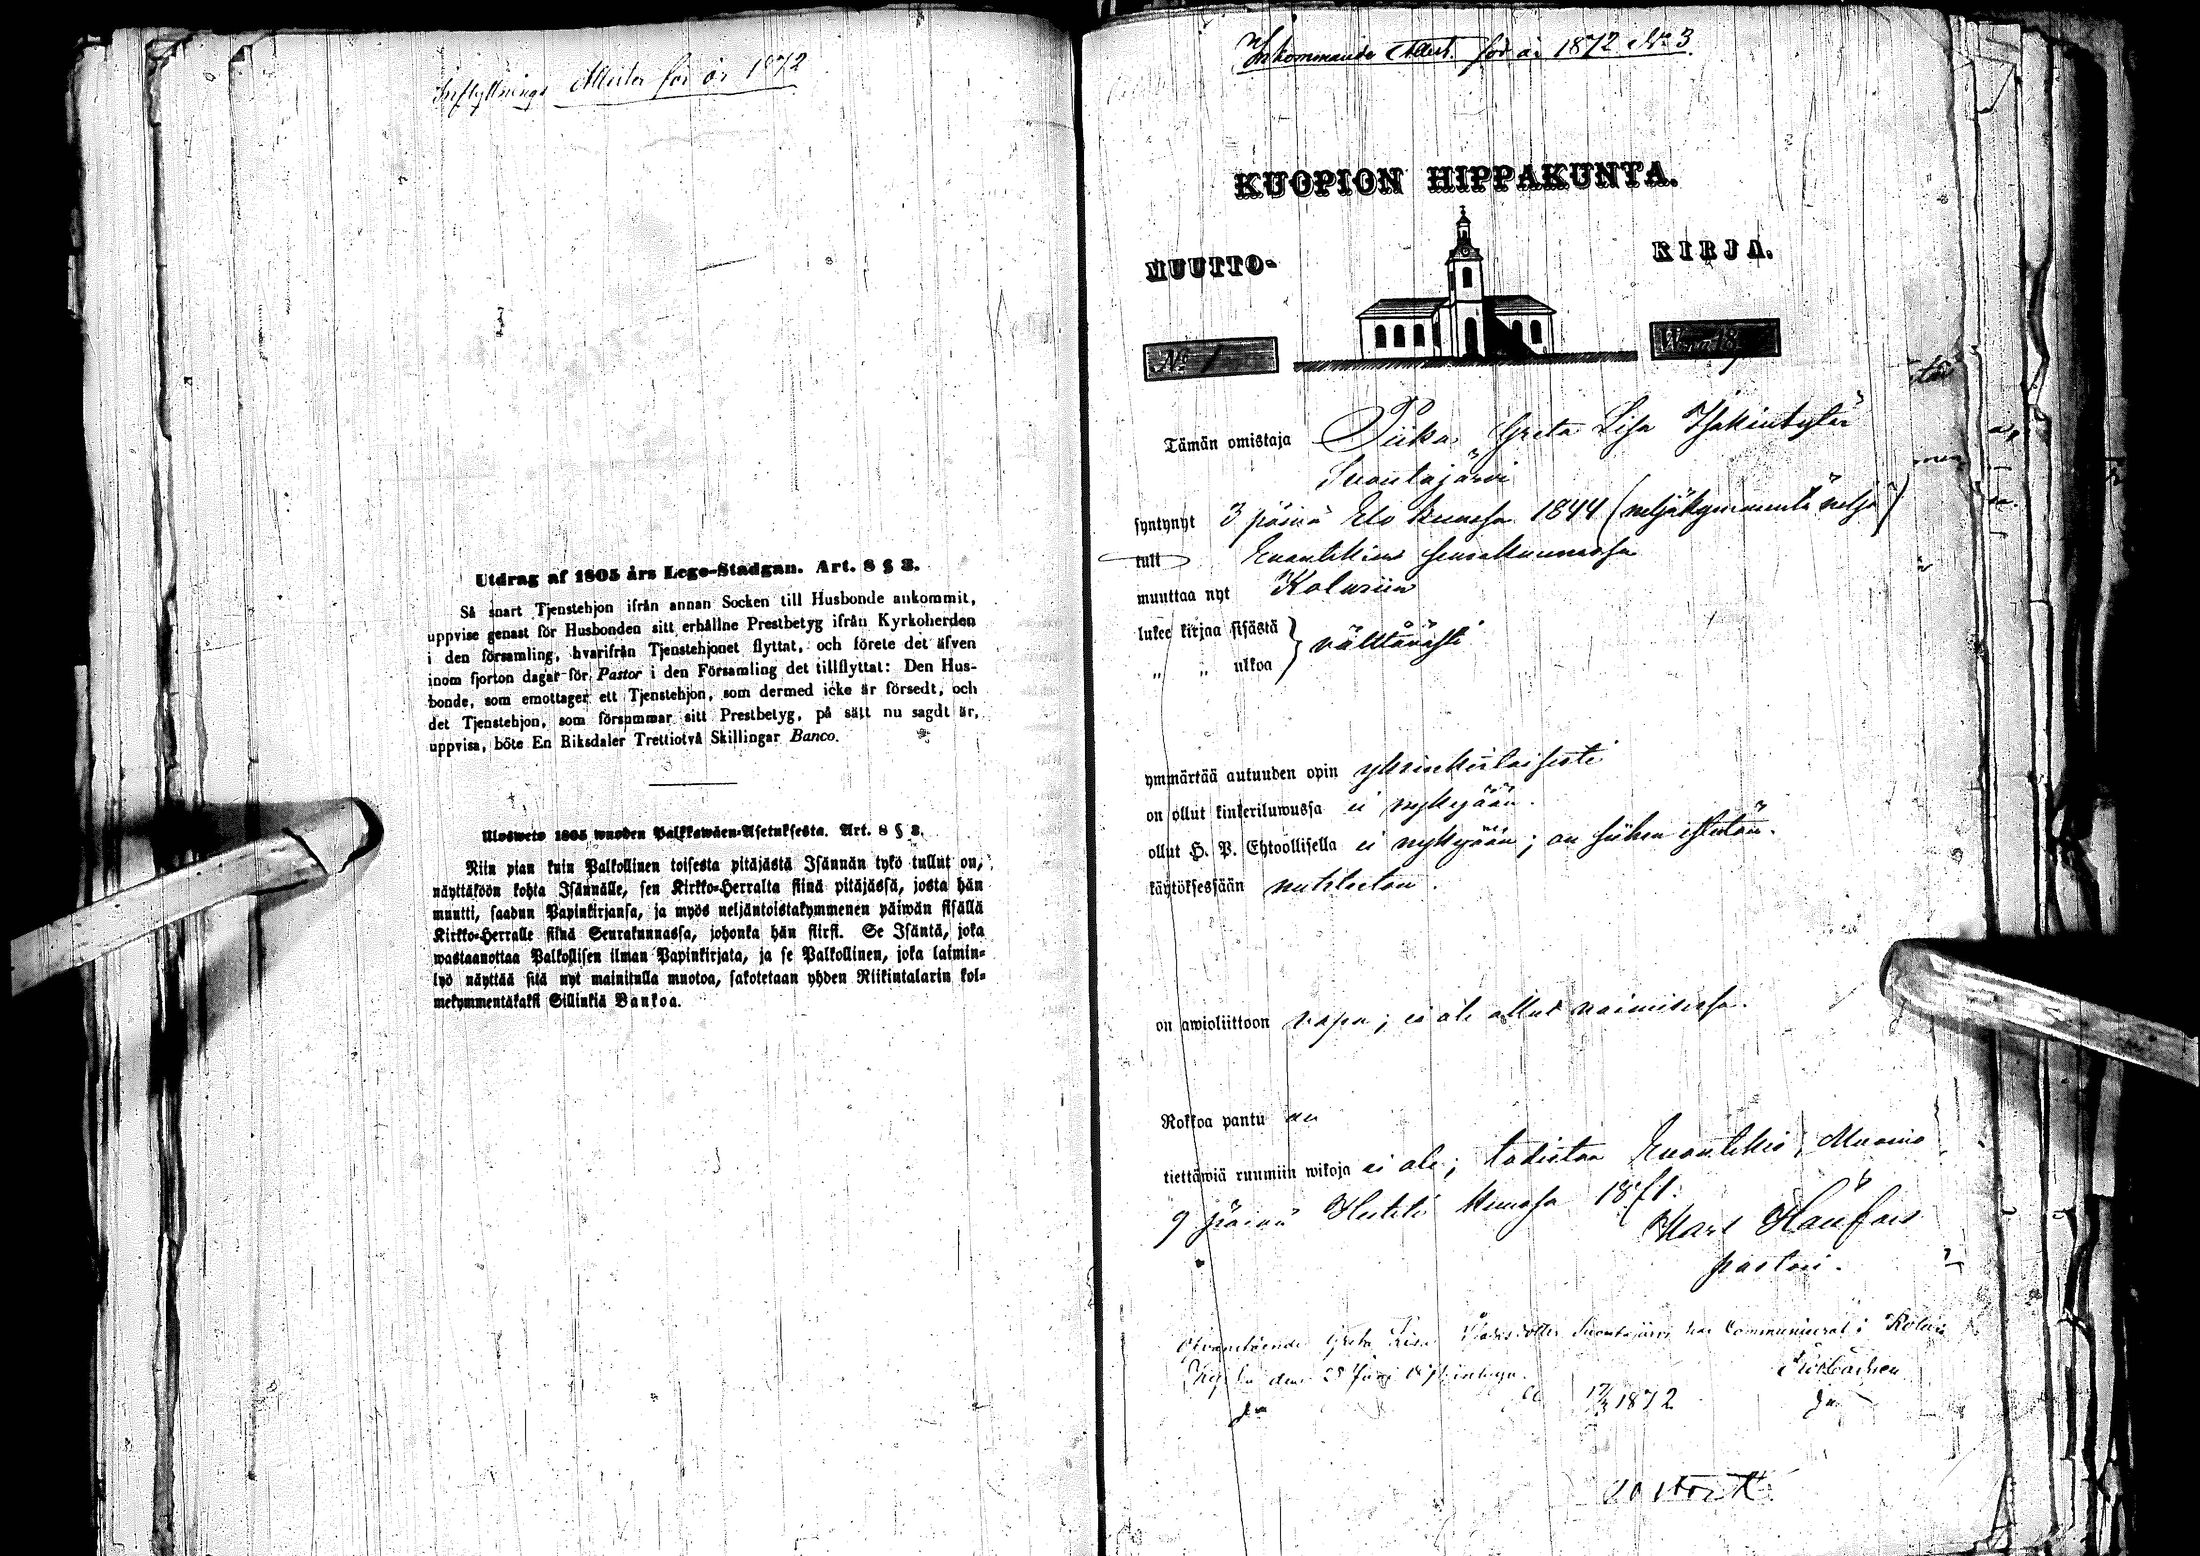 Inflyttnings Attester för år 1872
Utdrag af 1805 års Lego-Stadgan. Art. 8 § 3.
Så snart Tjenstehjon ifrån annan Socken till Husbonde ankommit,
uppvise genast för Husbonden sitt erhållne Prestbetyg ifrån Kyrkoherden
i den församling, hvarifrån Tjenstehjonet flyttat, och förete det äfven
inom fjorton dagar för Pastor i den Församling det tillflyttat: Den Hus-
bonde, som emottager ett Tjenstehjon, som dermed icke är försedt, och
det Tjenstehjon, som försummar sitt Prestbetyg, på sätt nu sagdt är,
uppvisa, böte En Riksdaler Trettiotvå Skillingar Banco.
Ulosweto 1805 wuoden Palkkawäen-Asetuksesta. Art. 8 § 3.
Niin pian kuin Palkollinen toisesta pitäjästä Isännän tykö tullut on,
näyttäköön kohta Isännälle, sen Kirkko-Herralta siinä pitäjässä, josta hän
muutti, saadun Papinkirjansa, ja myös neljäntoistakymmenen päiwän sisällä
Kirkko-Herralle siinä Seurakunnassa, johonka hän siirsi. Se Isäntä, joka
wastaanottaa Palkollisen ilman Papinkirjata, ja se Palkollinen, joka laimin-
lyö näyttää sitä nyt mainitulla muotoa, sakotetaan yhden Riikintalarin kol-
mekymmentäkaksi Sillinkiä Bankoa.
Inkommande Attest. för år 1872 No 3
KUOPION HIPPAKUNTA.
MUUTTO- KIRJA.
No 1
Tämän omistaja Piika Greta Lisa Isakintytär
Suontajärvi
syntynyt 3 päivä Elo kuussa 1844 (neljäkymmentä neljä)
tult Enontekien seurakunnassa
muuttaa nyt Kolariin
lukee kirjaa sisästä } välttävästi
" " ulkoa
ymmärtää autuuden opin yksinkertaisesti
on ollut kinkeriluwussa ei nykyään.
ollut H. P. Ehtoollisella ei nykyään; on siihen esteetön.
käytöksessään nuhteeton.
on awioliittoon vapa; ei ole ollut naimisessa.
Rokkoa pantu on
tiettäwiä ruumiin wikoja ei ole; todistaa Enontekis, Muonio
9 päivä Huhti kuussa 1871.
Karl
pastori.
Ofvanstående Greta Lisa Isaksdotter Suontajärvi har Communicerat i Kolari
den 25
1872